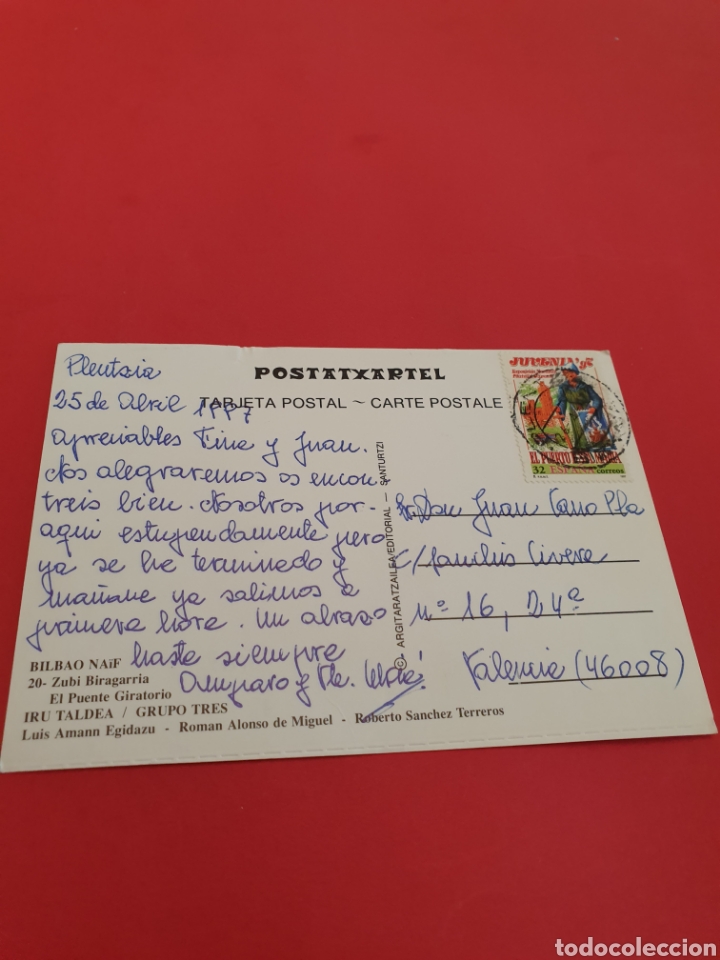 Plentzia
POSTATXARTEL
25 de Abril 1997
TARJETA POSTAL ~ CARTE POSTALE
JUVENIA'95
EL PUERTO DE
32 ESPAÑA CORREOS
Apreciables Fina y Juan.
Nos alegraremos os encon
treis bien. Nosotros por
aqui estupendamente pero
ya se ha terminado y
mañana ya salimos a
primera hora. Un abrazo
hasta siempre
Amparo y
Sr. Don Juan Cano Pla
c/ Civera
nº 16, 24ª
Valencia (46008)
© ARGITARATZAILEA/EDITORIAL — SANTURTZI
BILBAO NAïF
20- Zubi Biragarria
El Puente Giratorio
IRU TALDEA / GRUPO TRES
Luis Amann Egidazu - Roman Alonso de Miguel - Roberto Sanchez Terreros
todocoleccion